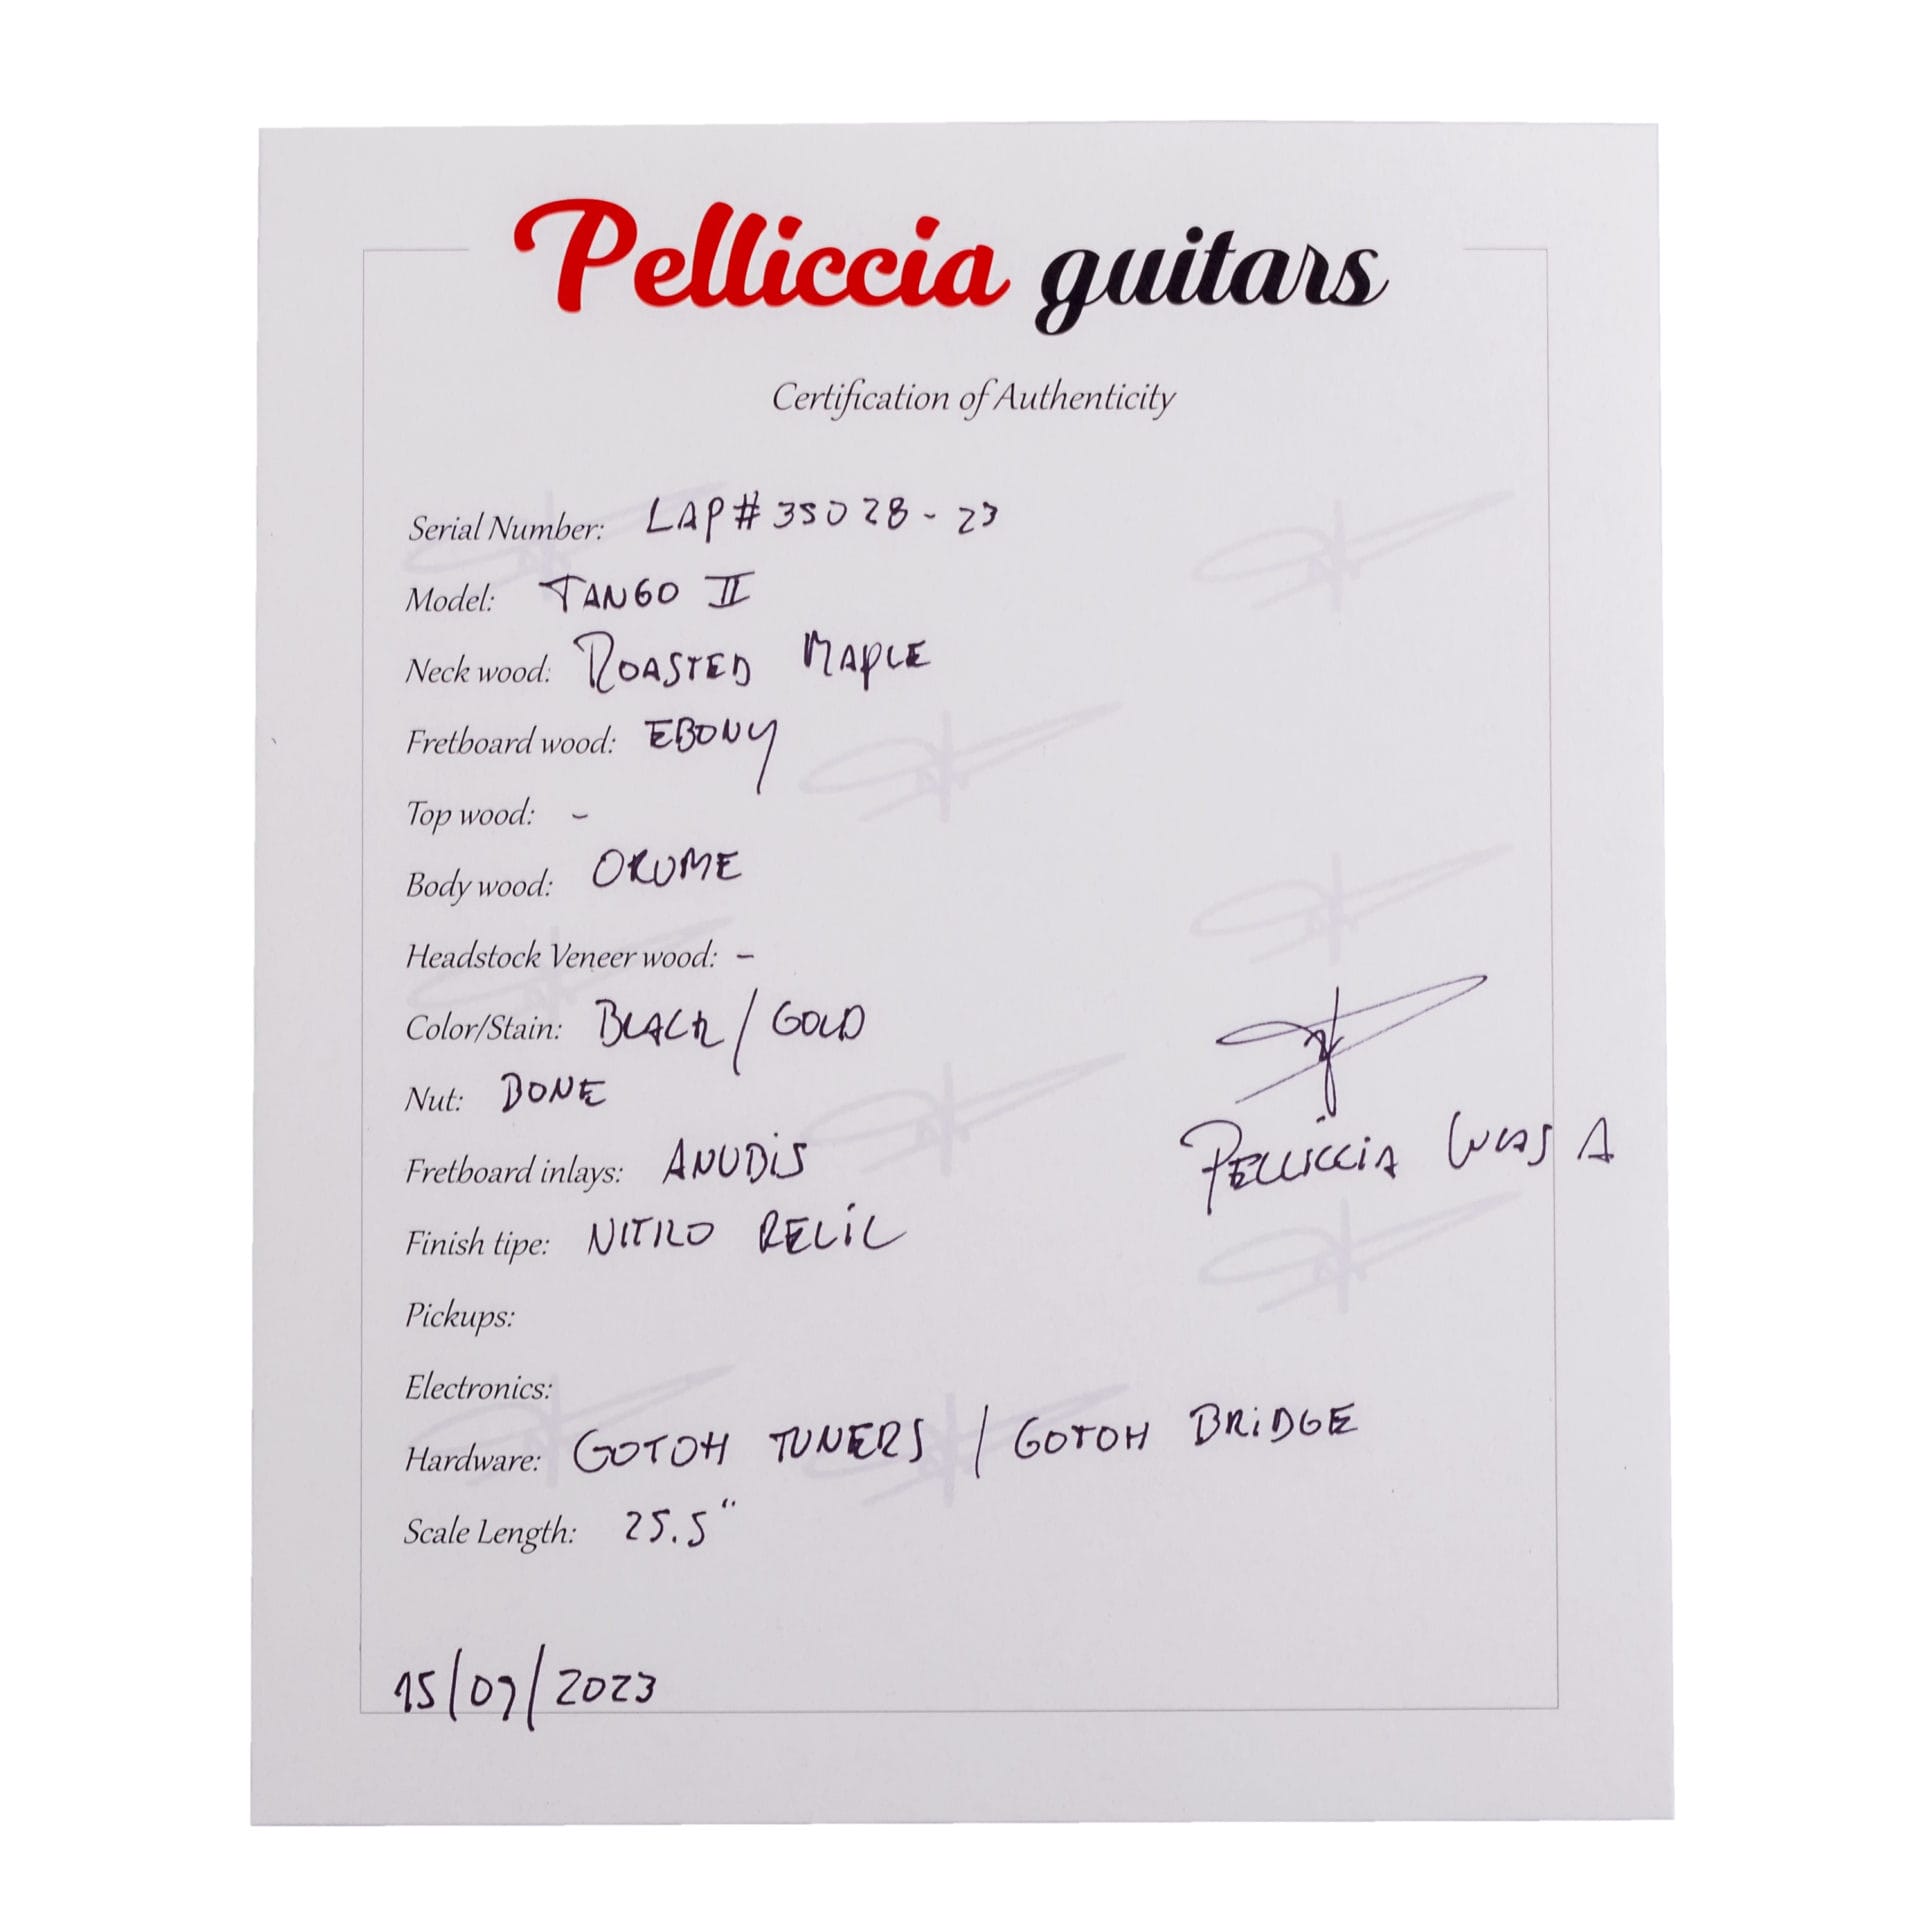 Pelliccia guitars
Certification of Authenticity
Serial Number: LAP#35028-23
Model: TANGO II
Neck wood: ROASTED MAPLE
Fretboard wood: EBONY
Top wood: -
Body wood: OKUME
Headstock Veneer wood: -
Color/Stain: BLACK / GOLD
Nut: BONE
Fretboard inlays: ANUBIS
Finish tipe: NITRO RELIC
Pickups:
Electronics:
Hardware: GOTOH TUNERS / GOTOH BRIDGE
Scale Length: 25.5"
PELLICCIA LUCAS A
15/09/2023